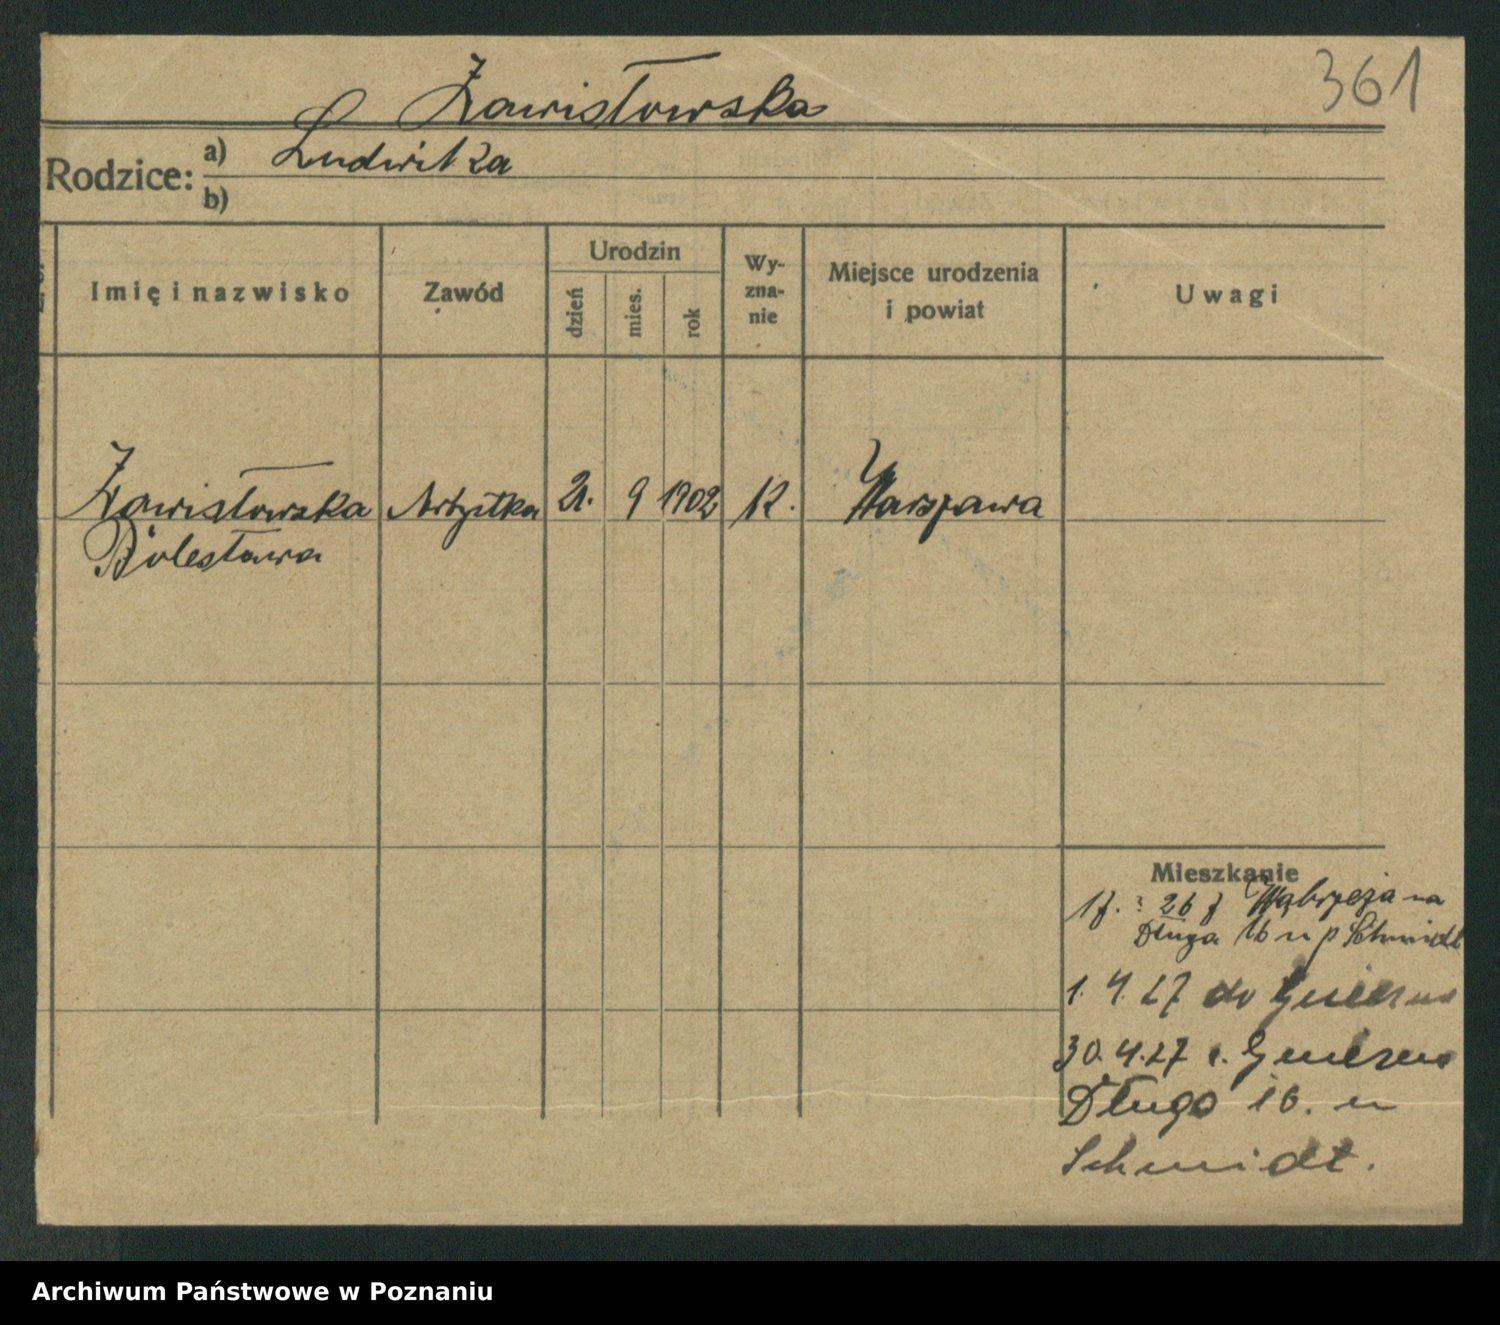 361
Zawistowska
Rodzice: a) Ludwika
b)
Imię i nazwisko
Zawód
Urodzin
dzień
mies.
rok
Wy-
zna-
nie
Miejsce urodzenia
i powiat
Uwagi
Zawistowska Artystka 21. 9 1902 K. Warszawa
Bolesława
Mieszkanie
26 Wąbrzeźna
Długa 16 u p Schmidt
1. 4. 27 do Gniezna
30. 4. 27 z. Gniezna
Długa 16. u
Schmidt.
Archiwum Państwowe w Poznaniu